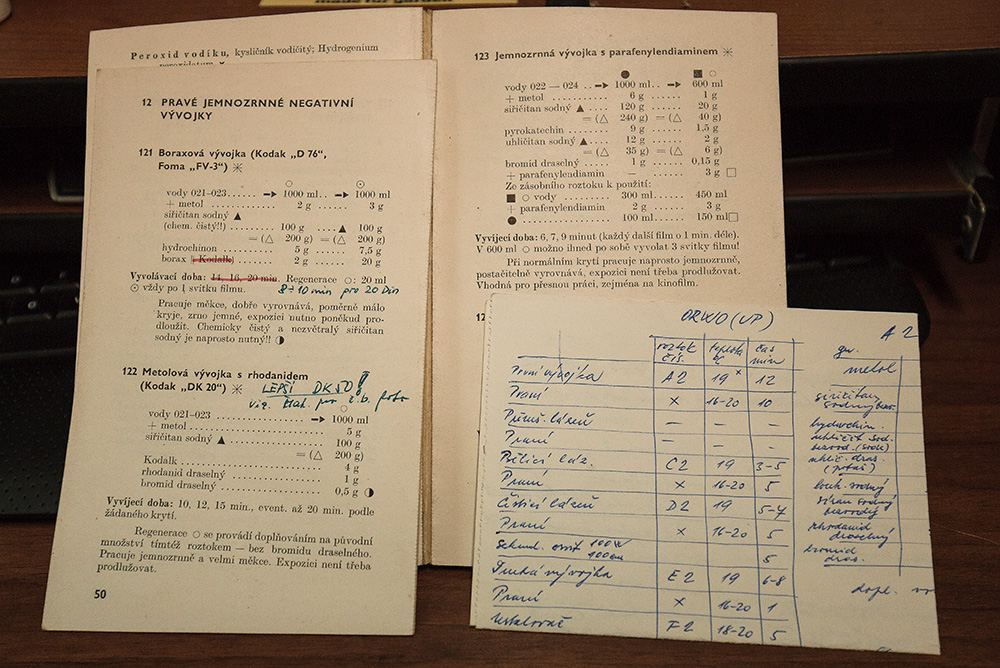 made for garden
Peroxid vodíku, kysličník vodičitý; Hydrogenium
12 PRAVÉ JEMNOZRNNÉ NEGATIVNÍ
VÝVOJKY
121 Boraxová vývojka (Kodak „D 76“,
Foma „FV-3“) ✳
○ ⊙
vody 021–023 ...... → 1000 ml .. → 1000 ml
+ metol ............ 2 g ...... 3 g
siřičitan sodný ▲
(chem. čistý!!) ........ 100 g ...... ▲ 100 g
= (△ 200 g) = (△ 200 g)
hydrochinon ........ 5 g ...... 7,5 g
borax (+ Kodalk) ...... 2 g ...... 20 g
Vyvolávací doba: 14, 16, 20 min. Regenerace ○: 20 ml
⊙ vždy po 1 svitku filmu. 8÷10 min pro 20 Din
Pracuje měkce, dobře vyrovnává, poměrně málo
kryje, zrno jemné, expozici nutno poněkud pro-
dloužit. Chemicky čistý a nezvětralý siřičitan
sodný je naprosto nutný!! ◑
122 Metolová vývojka s rhodanidem
(Kodak „DK 20“) ✳ LEPŠÍ DK50!
viz. č.b. foto
○
vody 021–023 ............ → 1000 ml
+ metol ............ 5 g
siřičitan sodný ▲ ............ 100 g
= (△ 200 g)
Kodalk ............ 4 g
rhodanid draselný ............ 1 g
bromid draselný ............ 0,5 g ◑
Vyvíjecí doba: 10, 12, 15 min., event. až 20 min. podle
žádaného krytí.
Regenerace ○ se provádí doplňováním na původní
množství tímtéž roztokem — bez bromidu draselného.
Pracuje jemnozrnně a velmi měkce. Expozici není třeba
prodlužovat.
50
123 Jemnozrnná vývojka s parafenylendiaminem ✳
● ■ ○
vody 022 — 024 .. → 1000 ml .. → 600 ml
+ metol ............ 6 g ...... 1 g
siřičitan sodný ▲ ...... 120 g ...... 20 g
= (△ 240 g) = (△ 40 g)
pyrokatechin ........ 9 g ...... 1,5 g
uhličitan sodný ▲ ...... 12 g ...... 2 g
= (△ 35 g) = (△ 6 g)
bromid draselný ...... 1 g ...... 0,15 g
+ parafenylendiamin — ...... 3 g □
Ze zásobního roztoku k použití:
■ ○ vody ........ 300 ml ...... 450 ml
+ parafenylendiamin 2 g ...... 3 g
● ............ 100 ml ...... 150 ml □
Vyvíjecí doba: 6, 7, 9 minut (každý další film o 1 min. déle).
V 600 ml ○ možno ihned po sobě vyvolat 3 svitky filmu!
Při normálním krytí pracuje naprosto jemnozrnně,
postačitelně vyrovnává, expozici není třeba prodlužovat.
Vhodná pro přesnou práci, zejména na kinofilm.
12
ORWO (UP)
roztok čís. teplota °C čas min
První vývojka A2 19 × 12
Praní × 16-20 10
Přeruš. lázeň — — —
Praní — — —
Bělící láz. C2 19 3-5
Praní × 16-20 5
Čistící lázeň D2 19 5-7
Praní × 16-20 5
Sekund. osvit 100W
100cm 5
Druhá vývojka E2 19 6-8
Praní × 16-20 1
Ustalovač F2 18-20 5
A 2
metol
siřičitan
sodný bezv.
hydrochin.
uhličit. sod.
bezvod. (soda)
uhlič. dras.
(potaš)
louh sodný
bezvodý
rhodanid
draselný
bromid
dras.
dopl.